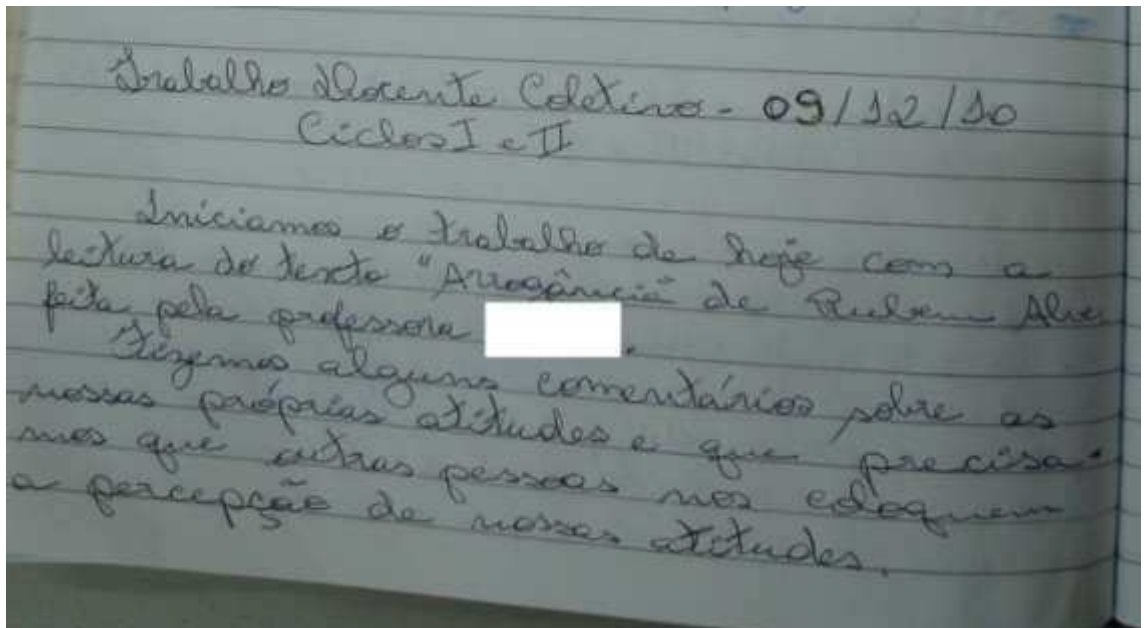 Trabalho Docente Coletivo - 09/12/10
Ciclos I e II
Iniciamos o trabalho de hoje com a
leitura do texto "Arrogância" de Rubem Alves
feita pela professora .
Fizemos alguns comentários sobre as
nossas próprias atitudes e que precisa-
mos que outras pessoas nos coloquem
a percepção de nossas atitudes.